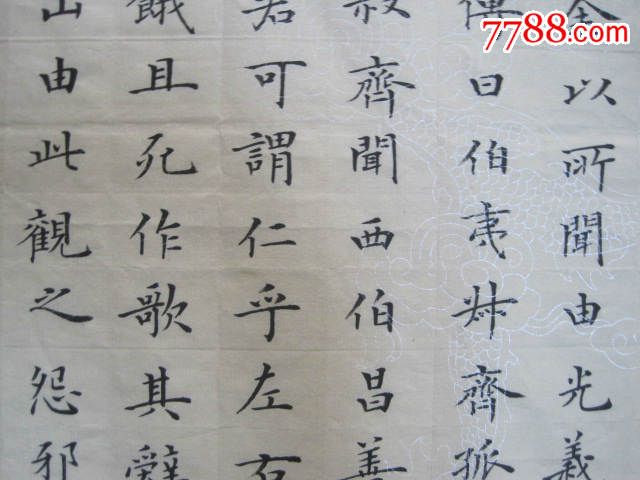 以所聞由光義
傳曰伯夷叔齊孤
叔齊聞西伯昌善
君可謂仁乎左右
餓且死作歌其辭
山由此觀之怨邪
7788.com
中国收藏热线